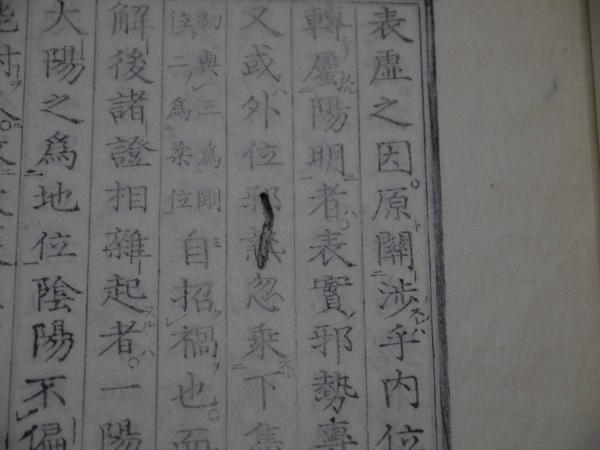 表虛之因。原關涉乎內位
轉屬陽明者。表實邪勢專
又或外位邪熱忽乘下焦
初與三為剛
位二為柔位
自招禍也。而
解後諸證相雜起者。一陽
大陽之為地位陰陽不偏